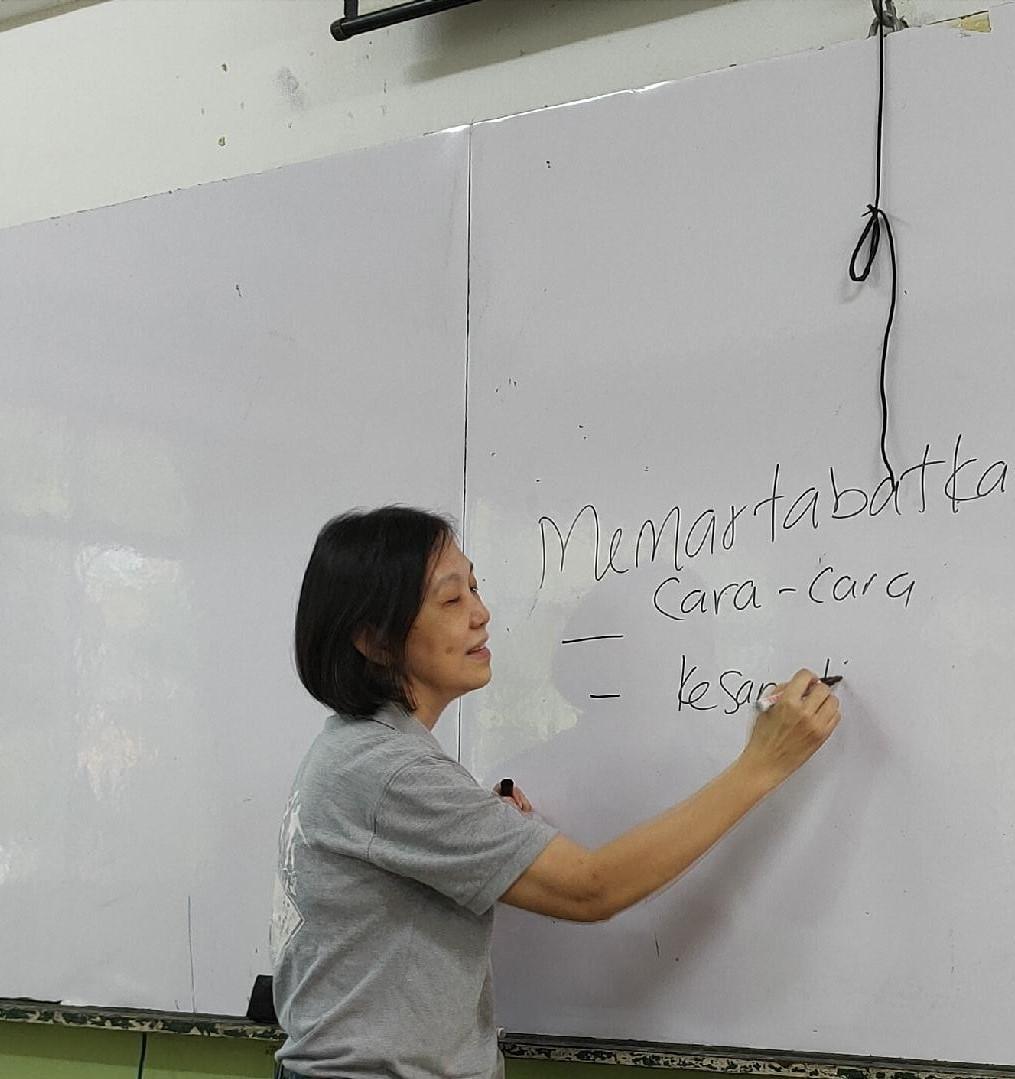 Memartabatka
cara-cara
—
-